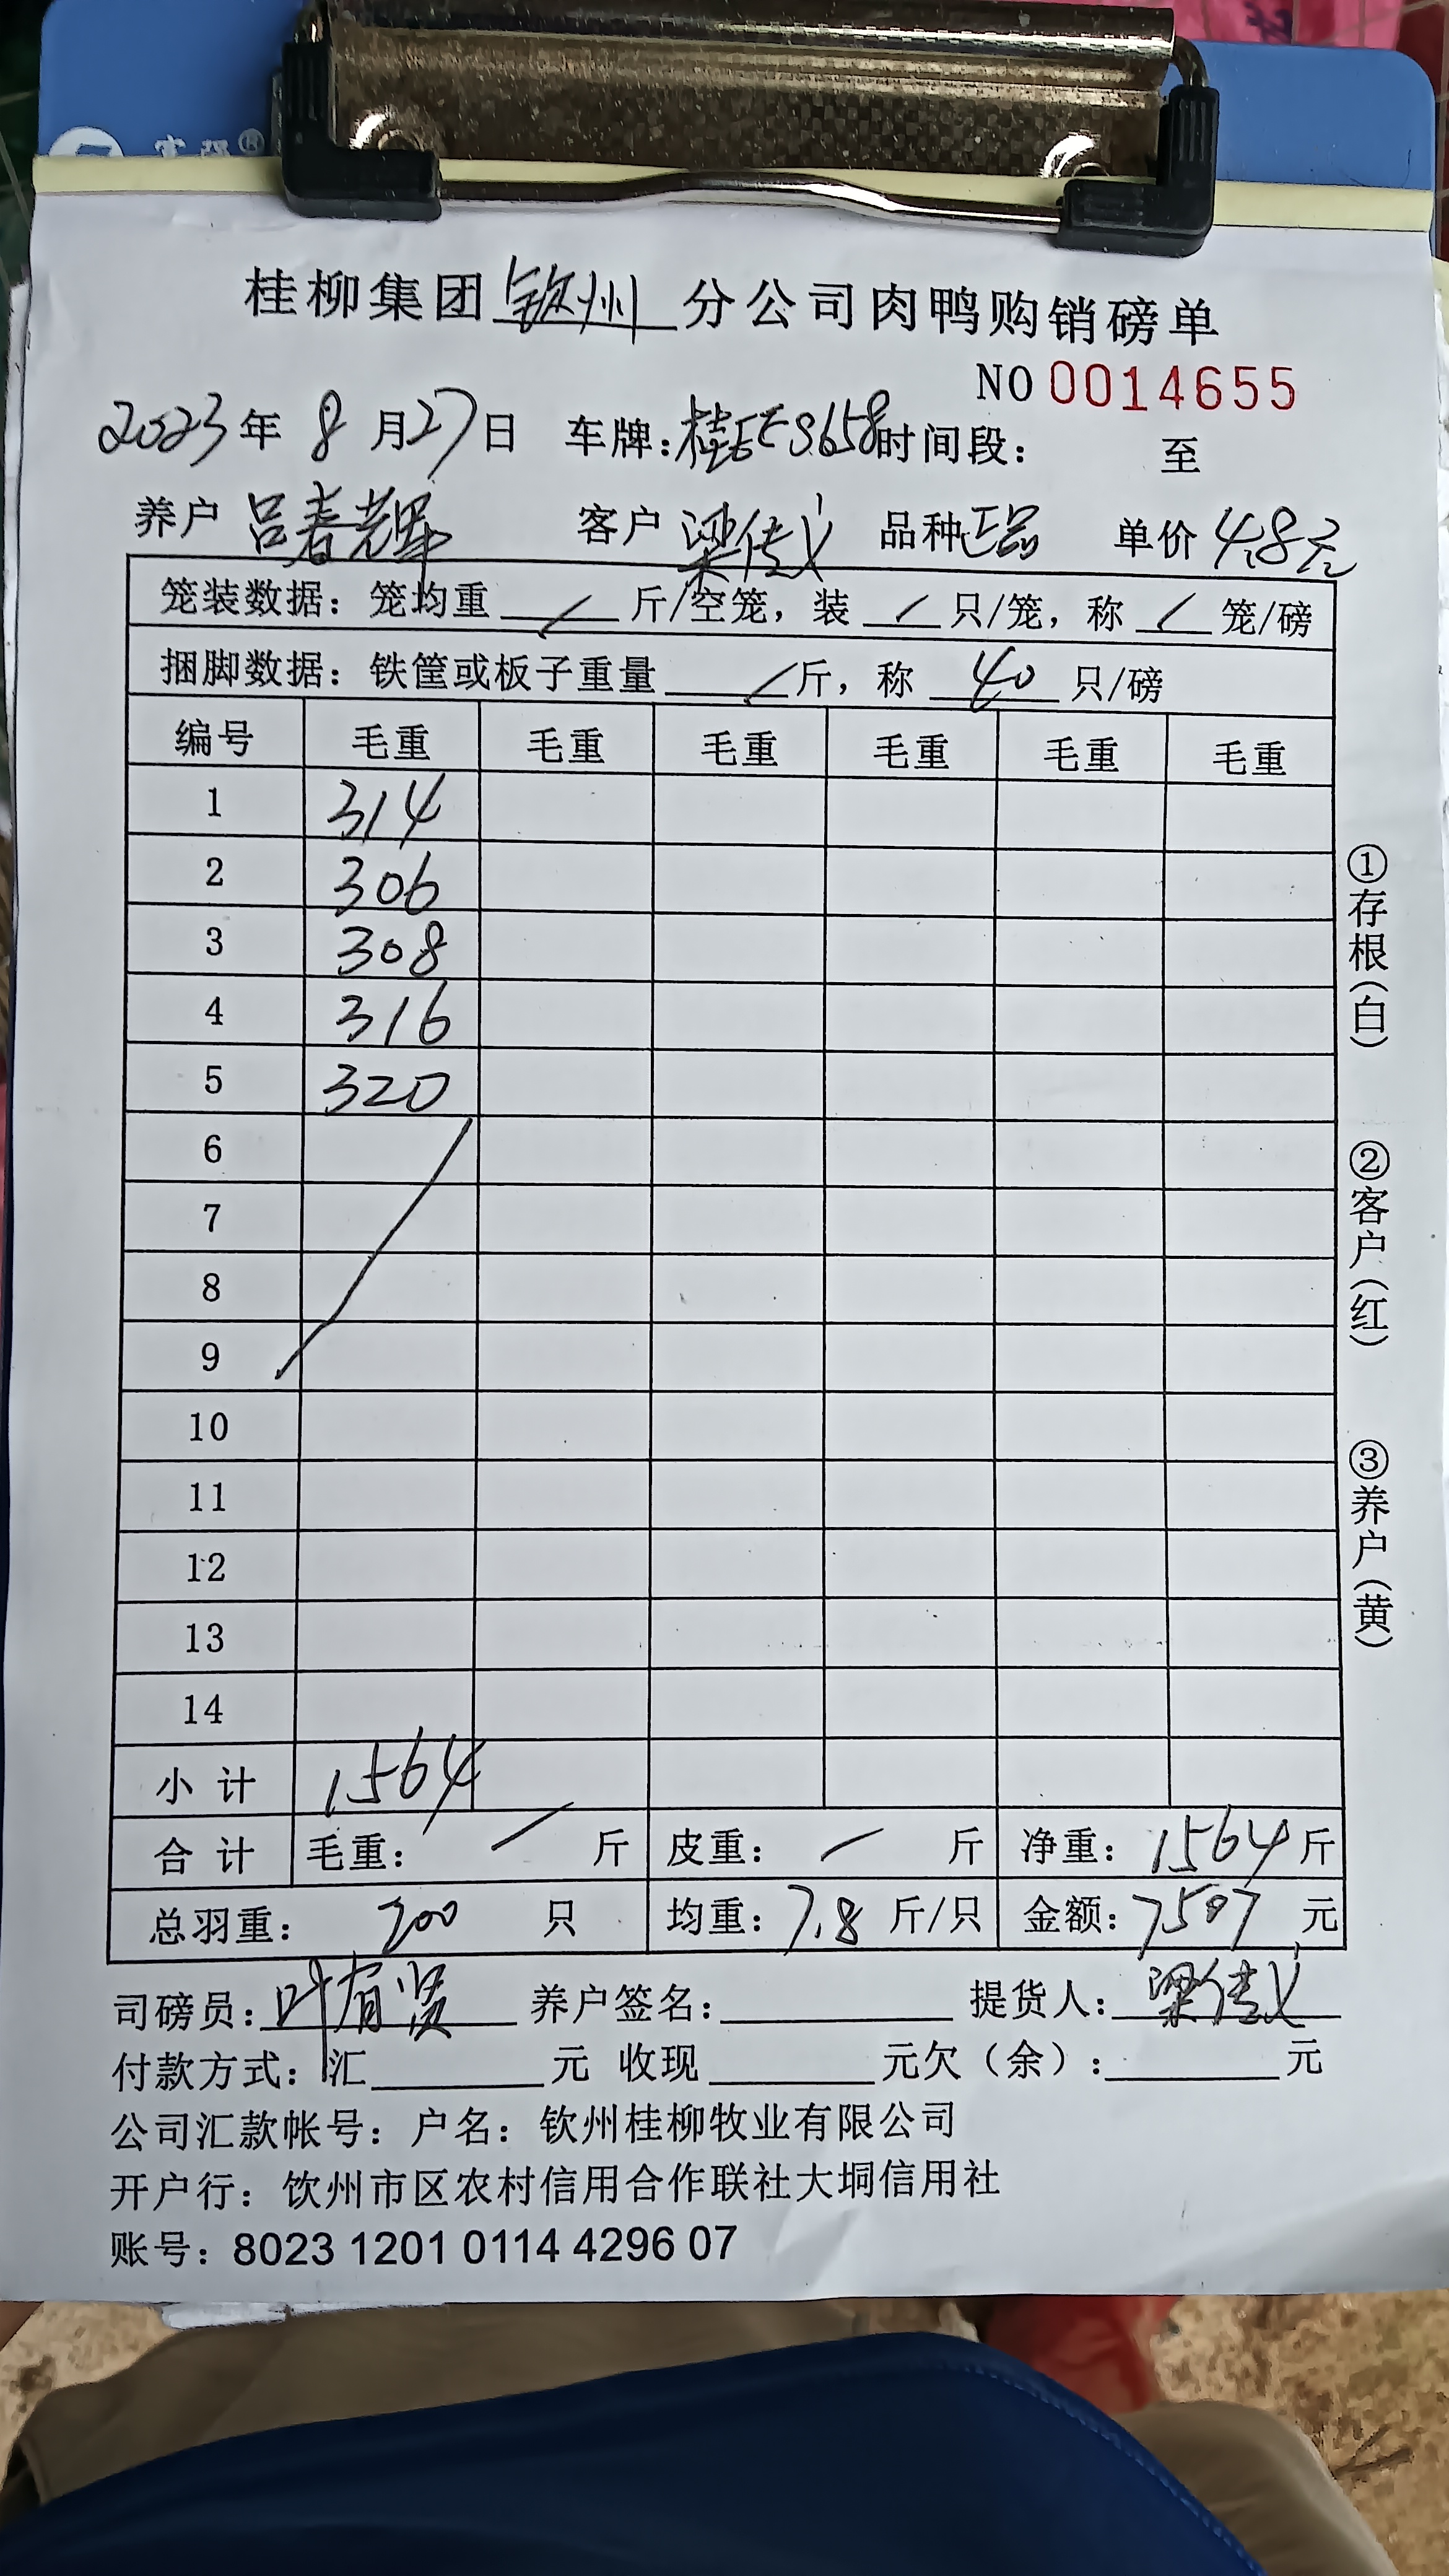 桂柳集团钦州分公司肉鸭购销磅单
NO 0014655
2023年 8 月27日 车牌: 时间段: 至
养户 吕春辉 客户 梁传义 品种 正品 单价 4.8元
笼装数据：笼均重 / 斤/空笼，装 / 只/笼，称 / 笼/磅
捆脚数据：铁筐或板子重量 / 斤，称 40 只/磅
编号 毛重 毛重 毛重 毛重 毛重 毛重
1 314
2 306
3 308
4 316
5 320
6
7
8
9
10
11
12
13
14
小 计 1564
合 计 毛重： / 斤 皮重： / 斤 净重：1564斤
总羽重： 200 只 均重：7.8 斤/只 金额：7507 元
司磅员：叶有贤 养户签名： 提货人：梁传义
付款方式：汇 元 收现 元欠（余）： 元
公司汇款帐号：户名：钦州桂柳牧业有限公司
开户行：钦州市区农村信用合作联社大垌信用社
账号：8023 1201 0114 4296 07
①存根（白）
②客户（红）
③养户（黄）